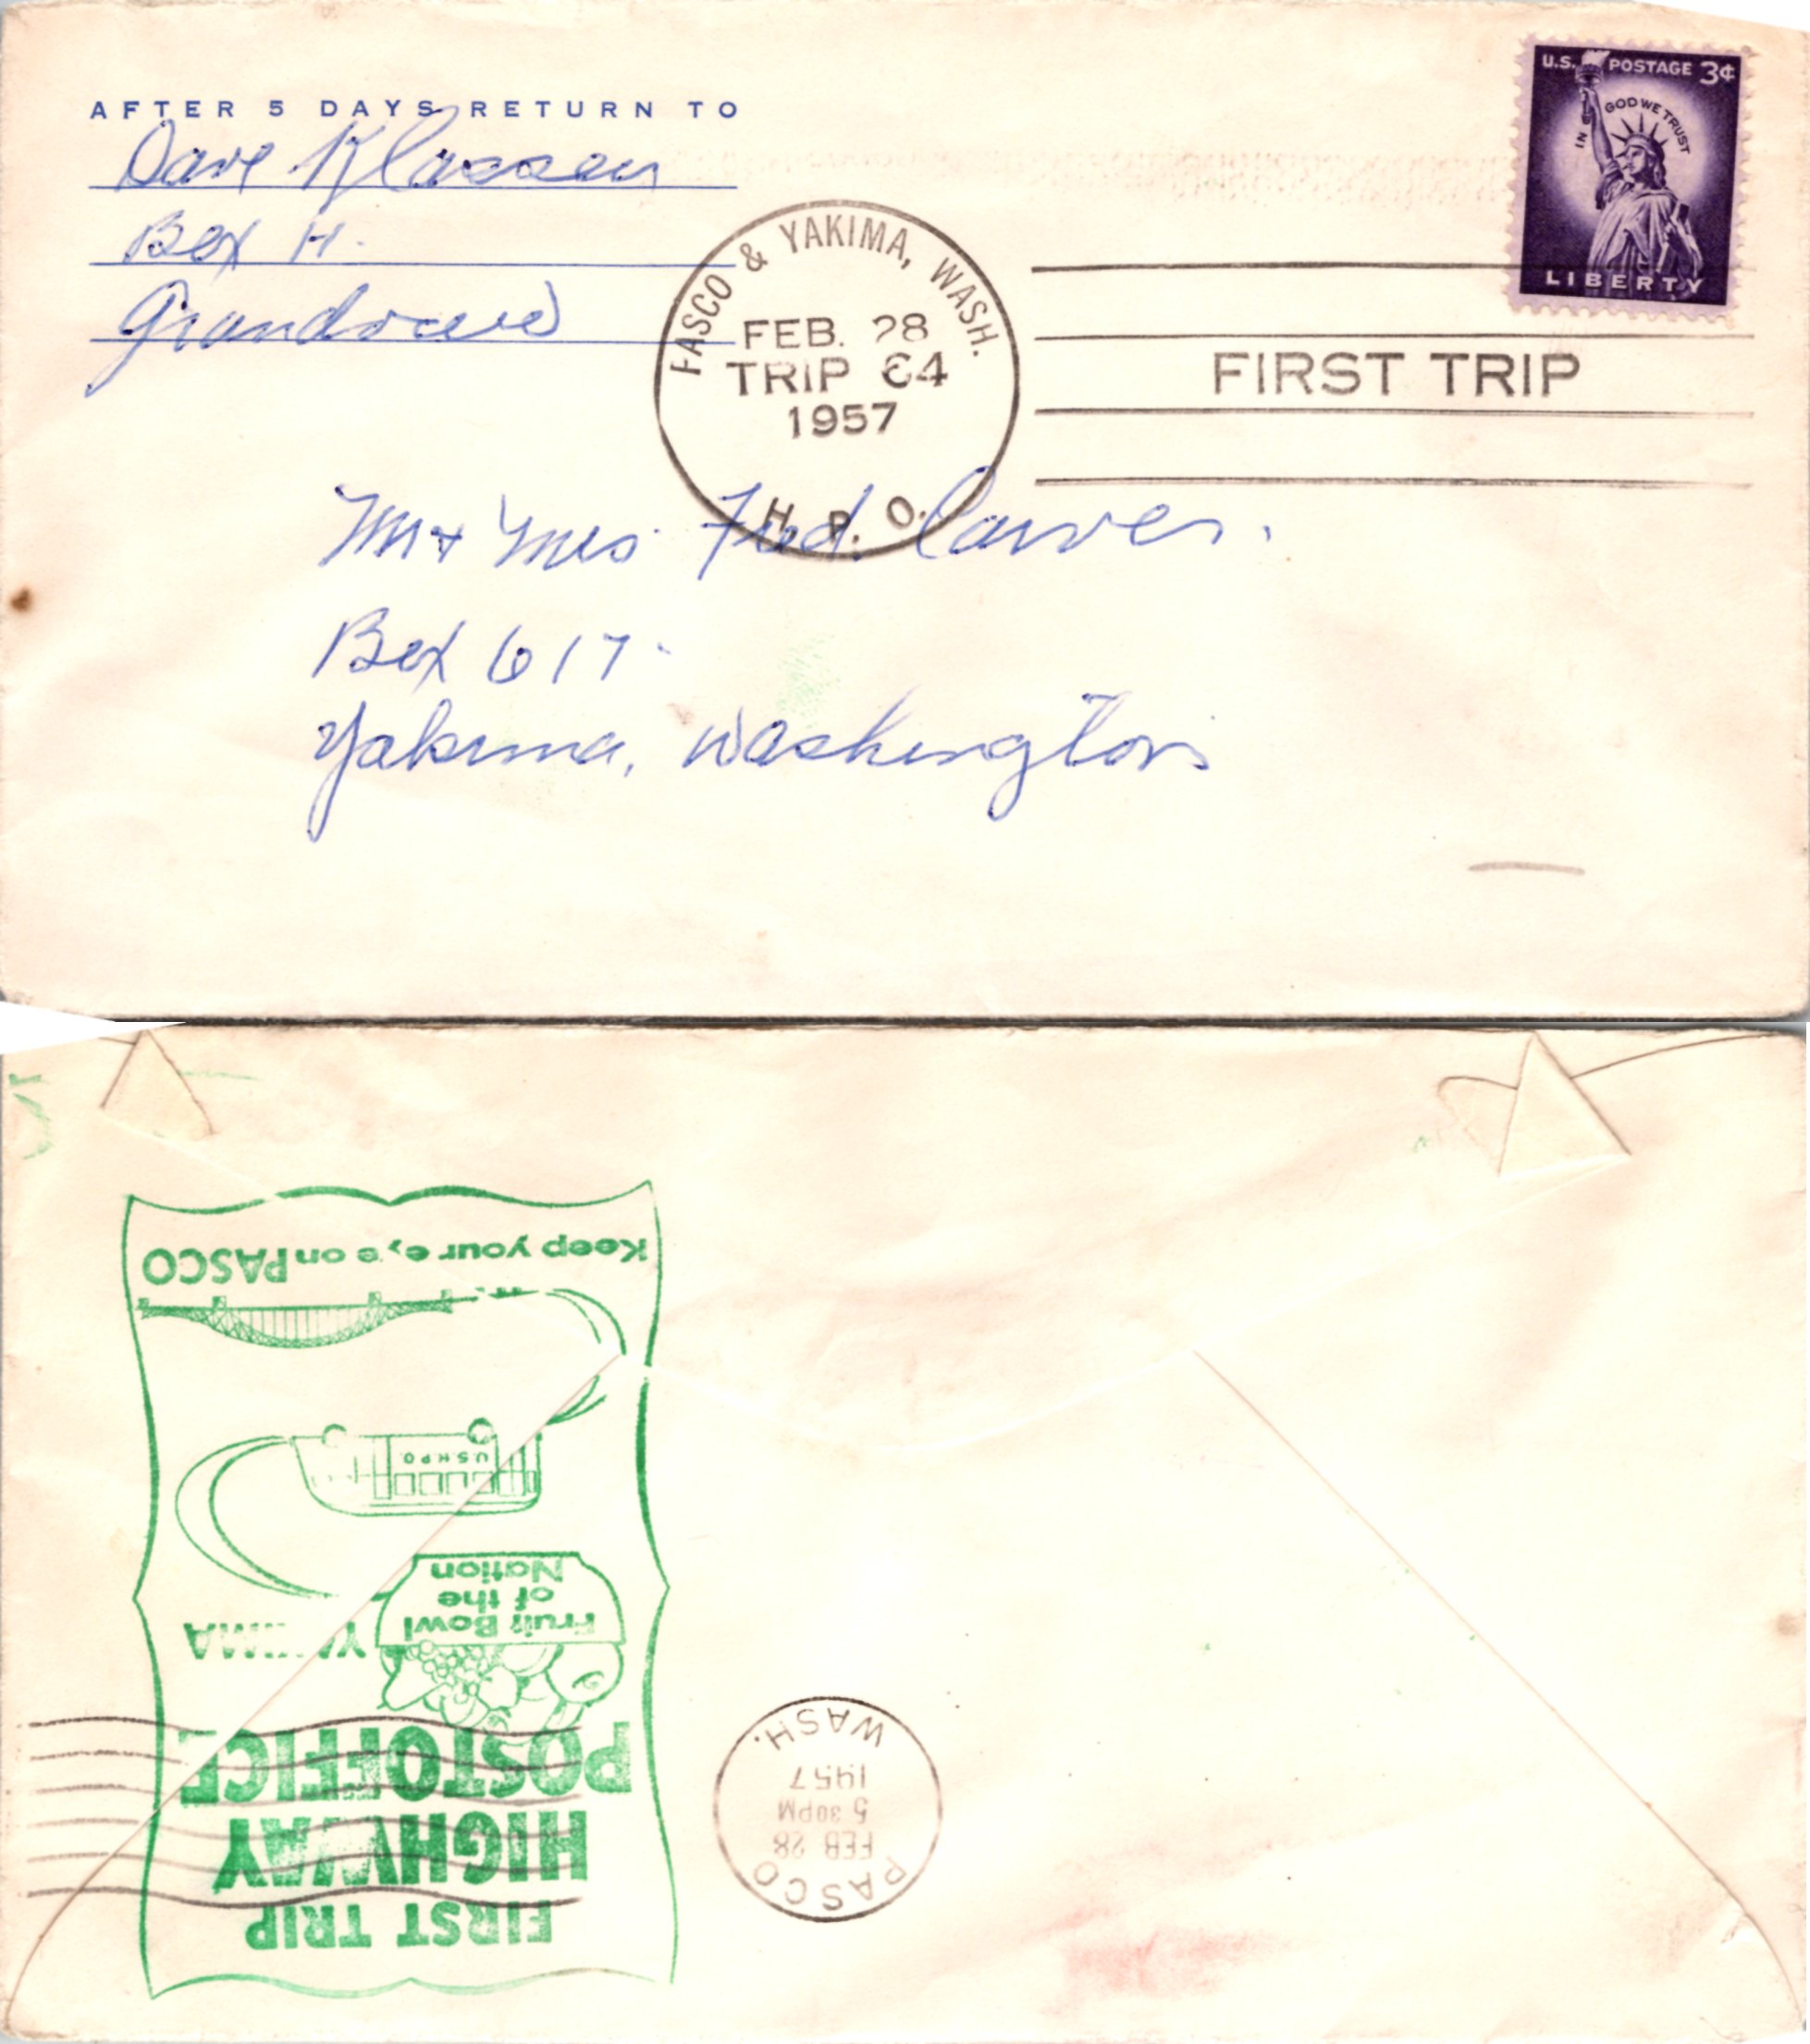 AFTER 5 DAYS RETURN TO
Dave Klassen
Box H.
Grandview
U.S. POSTAGE 3¢
IN GOD WE TRUST
LIBERTY
PASCO & YAKIMA, WASH.
FEB. 28
TRIP 64
1957
H. P. O.
FIRST TRIP
Mr + Mrs Fred. Carver.
Box 617
Yakima, Washington
FIRST TRIP
HIGHWAY
POST OFFICE
YAKIMA
Fruit Bowl
of the
Nation
U.S.H.P.O.
Keep your eye on PASCO
PASCO
FEB 28
5 30PM
1957
WASH.